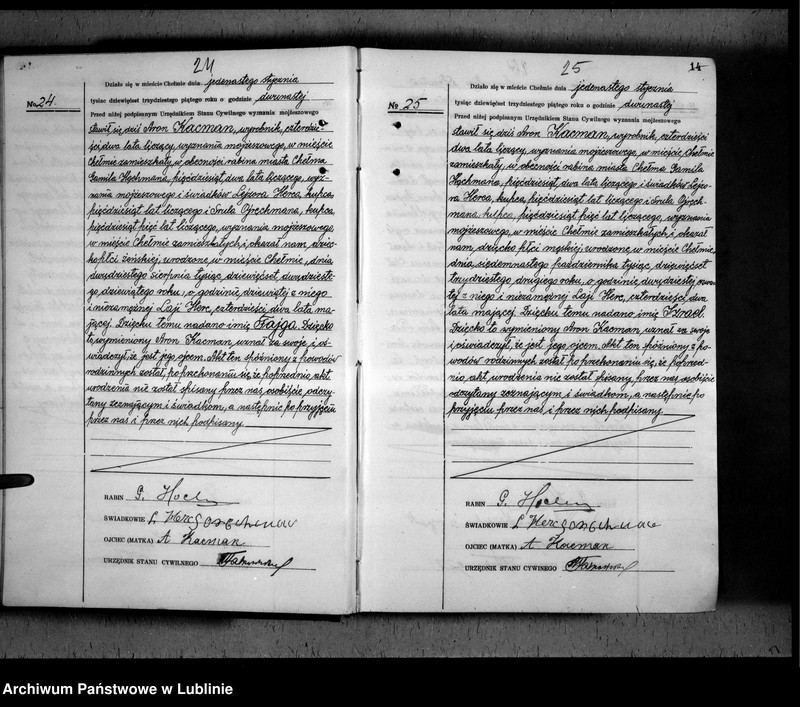 24
№ 24.
Działo się w mieście Chełmie dnia jedenastego stycznia
tysiąc dziewięćset trzydziestego piątego roku o godzinie dwunastej
Przed niżej podpisanym Urzędnikiem Stanu Cywilnego wyznania mojżeszowego
stawił się dziś Aron Kacman, wyrobnik, czterdzie-
ści dwa lata liczący, wyznania mojżeszowego, w mieście
Chełmie zamieszkały, w obecności rabina miasta Chełma
Gamila Hochmana, pięćdziesiąt dwa lata liczącego, wyz-
nania mojżeszowego i świadków Lejzora Herca, kupca,
pięćdziesiąt lat liczącego i Srula Gorechmana, kupca,
pięćdziesiąt pięć lat liczącego, wyznania mojżeszowego,
w mieście Chełmie zamieszkałych, i okazał nam, dziec-
ko płci żeńskiej, urodzone w mieście Chełmie, dnia
dwudziestego sierpnia tysiąc dziewięćset dwudzieste-
go dziewiątego roku, o godzinie dziewiątej z niego
i niezamężnej Łaji Herc, czterdzieści dwa lata ma-
jącej. Dziecku temu nadano imię Fajga. Dziecko
to, wymieniony Aron Kacman, uznał za swoje i oś-
wiadczył, że jest jego ojcem. Akt ten spóźniony z powodów
rodzinnych został, po przekonaniu się, że poprzednio, akt
urodzenia nie został spisany przez nas, osobiście odczy-
tany zeznającym i świadkom, a następnie po przyjęciu
przez nas i przez nich podpisany.
RABIN G. Hochm
ŚWIADKOWIE L Herc Gorechman
OJCIEC (MATKA) A Kacman
URZĘDNIK STANU CYWILNEGO
25
14
№ 25
Działo się w mieście Chełmie dnia jedenastego stycznia
tysiąc dziewięćset trzydziestego piątego roku o godzinie dwunastej
Przed niżej podpisanym Urzędnikiem Stanu Cywilnego wyznania mojżeszowego
stawił się dziś Aron Kacman, wyrobnik, czterdzieści
dwa lata liczący, wyznania mojżeszowego, w mieście Chełmie
zamieszkały, w obecności rabina miasta Chełma Gamila
Hochmana, pięćdziesiąt dwa lata liczącego i świadków Lejzo-
ra Herca, kupca, pięćdziesiąt lat liczącego i Srula Gorech-
mana, kupca, pięćdziesiąt pięć lat liczącego, wyznania
mojżeszowego, w mieście Chełmie zamieszkałych, i okazał
nam, dziecko płci męskiej, urodzone w mieście Chełmie,
dnia, siedemnastego października tysiąc dziewięćset
trzydziestego drugiego roku, o godzinie dwudziestej czwar-
tej z niego i niezamężnej Łaji Herc, czterdzieści dwa
lata mającej. Dziecku temu nadano imię Izrael.
Dziecko to, wymieniony Aron Kacman, uznał za swoje
i oświadczył, że jest jego ojcem. Akt ten spóźniony z po-
wodów rodzinnych został po przekonaniu się, że poprzed-
nio, akt urodzenia nie został spisany, przez nas, osobiście
odczytany zeznającym i świadkom, a następnie po
przyjęciu przez nas i przez nich podpisany.
RABIN G. Hochm
ŚWIADKOWIE L Herc Gorechman
OJCIEC (MATKA) A Kacman
URZĘDNIK STANU CYWINEGO
Archiwum Państwowe w Lublinie